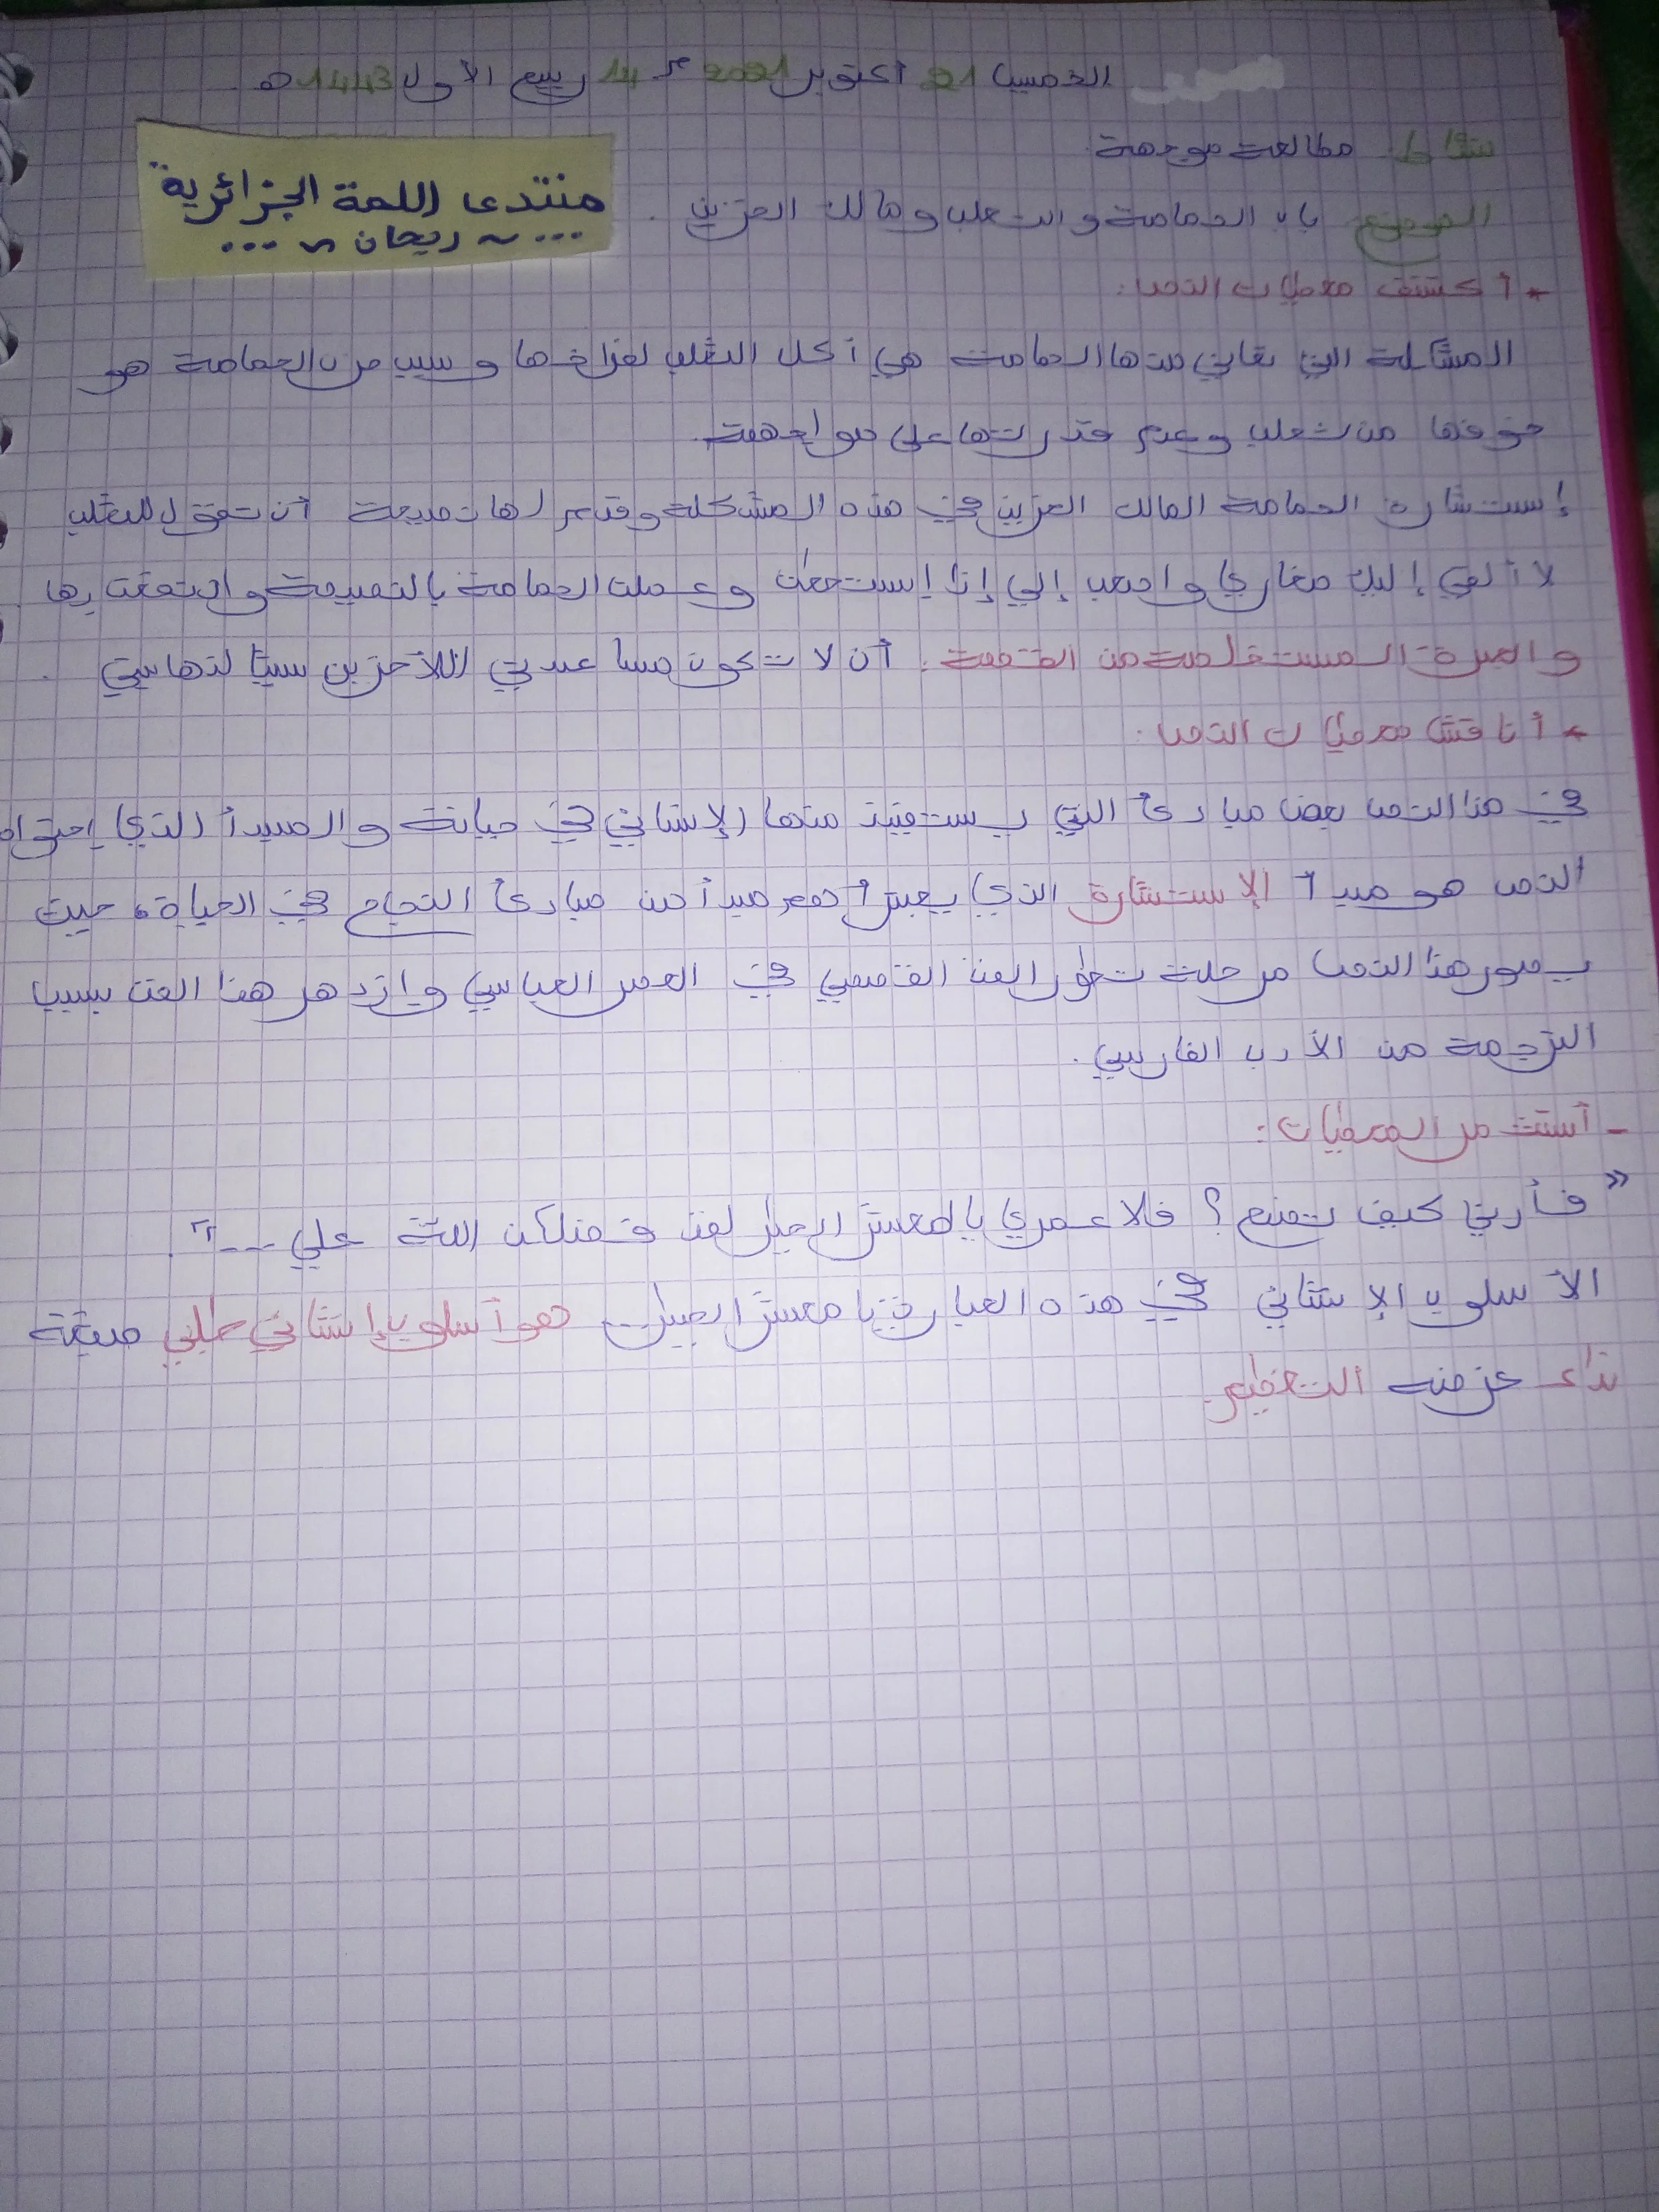 الخميس 21 أكتوبر 2021 م 14 ربيع الأول 1443 ه
نشاط: مطالعة موجهة.
منتدى اللمة الجزائرية
... ~ ريحان ~ ...
الموضوع: باب الحمامة والثعلب ومالك الحزين.
* أكتشف معطيات النص:
المشكلة التي تعاني منها الحمامة هي أكل الثعلب لفراخها وسبب حزن الحمامة هو
خوفها من ثعلب وعدم قدرتها على مواجهته.
إستشارة الحمامة المالك الحزين في هذه المشكلة وقدم لها نصيحة أن تقول للثعلب
لا ألقي إليك صغاري واصعب إلي إذا إستطعت وعملت الحمامة بالنصيحة و بها
والعبرة المستخلصة من القصة: أن لا تكون مساعدتي للآخرين سببا لتهايتي.
* أناقش معطيات النص:
في هذا النص بعض مبادئ التي يستفيد منها الإنساني في حياته والمبدأ الذي إحتواه
النص هو مبدأ الإستشارة الذي يعبتر أهم مبدأ من مبادئ النجاح في الحياة، حيث
يصور هذا النص مرحلة تطور الفن القصصي في العصر العباسي وازدهر هذا الفن بسبب
الترجمة من الأدب الفارسي.
- أستثمر المعطيات:
"فأريني كيف تصنع؟ فلا عمري يا لمعشر الطير لقد فضلكن الله علي ---".
الأسلوب الإنشائي في هذه العبارة يا معشر الطير... هو أسلوب إنشائي طلبي صيغته
نداء غرضه التعظيم.